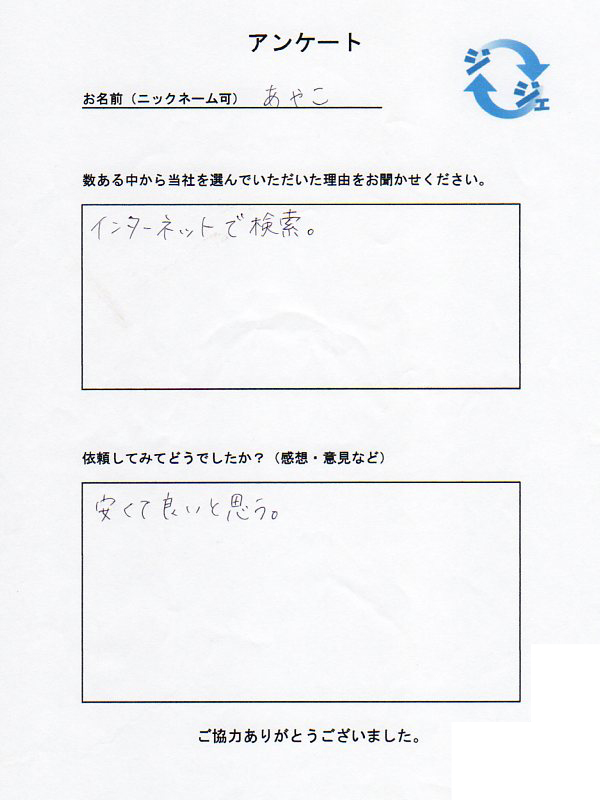 アンケート
ジジェ
お名前（ニックネーム可） あやこ
数ある中から当社を選んでいただいた理由をお聞かせください。
インターネットで検索。
依頼してみてどうでしたか？（感想・意見など）
安くて良いと思う。
ご協力ありがとうございました。